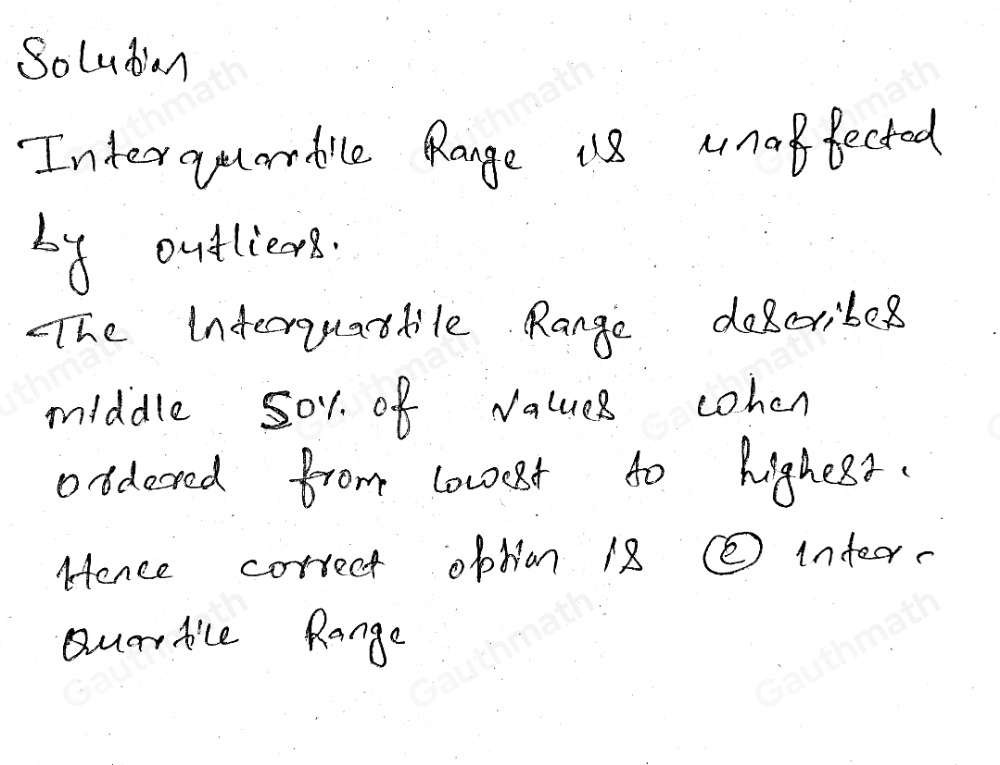 Solution
Interquartile Range is unaffected
by outliers.
The Interquartile Range describes
middle 50% of values when
ordered from lowest to highest.
Hence correct option is (e) inter-
Quartile Range
Gauthmath